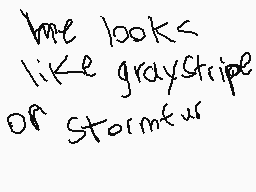 he looks
like graystripe
or stormfur